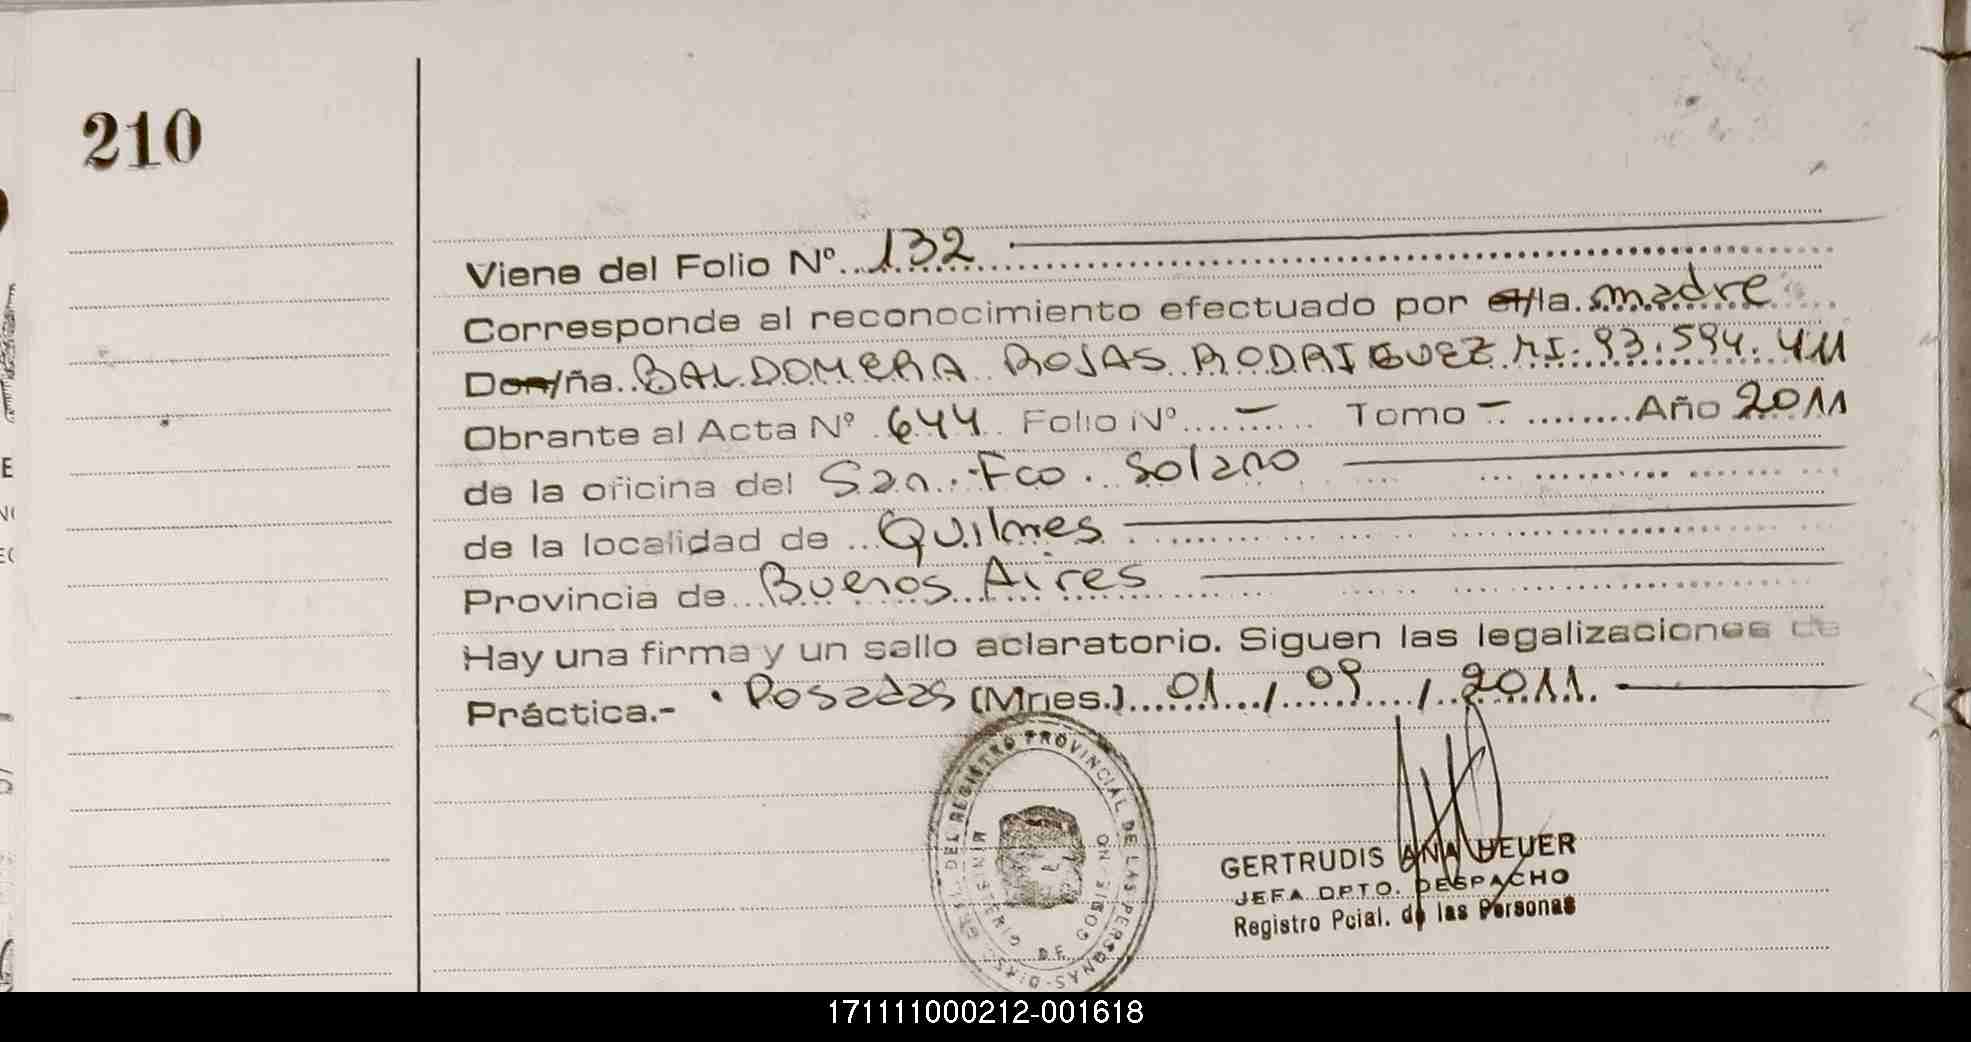 210
Viene del Folio Nº 132
Corresponde al reconocimiento efectuado por el/la madre
Don/ña BALDOMERA ROJAS RODRIGUEZ MI. 93.594.411
Obrante al Acta Nº 644 Folio Nº - Tomo - Año 2011
de la oficina del San Fco. Solano
de la localidad de Quilmes
Provincia de Buenos Aires
Hay una firma y un sello aclaratorio. Siguen las legalizaciones de
Práctica.- Posadas (Mnes.) 01 / 09 / 2011.
DEL REGISTRO PROVINCIAL DE LAS PERSONAS
MINISTERIO DE GOBIERNO
GERTRUDIS ANA HEUER
JEFA DPTO. DESPACHO
Registro Pcial. de las Personas
171111000212-001618